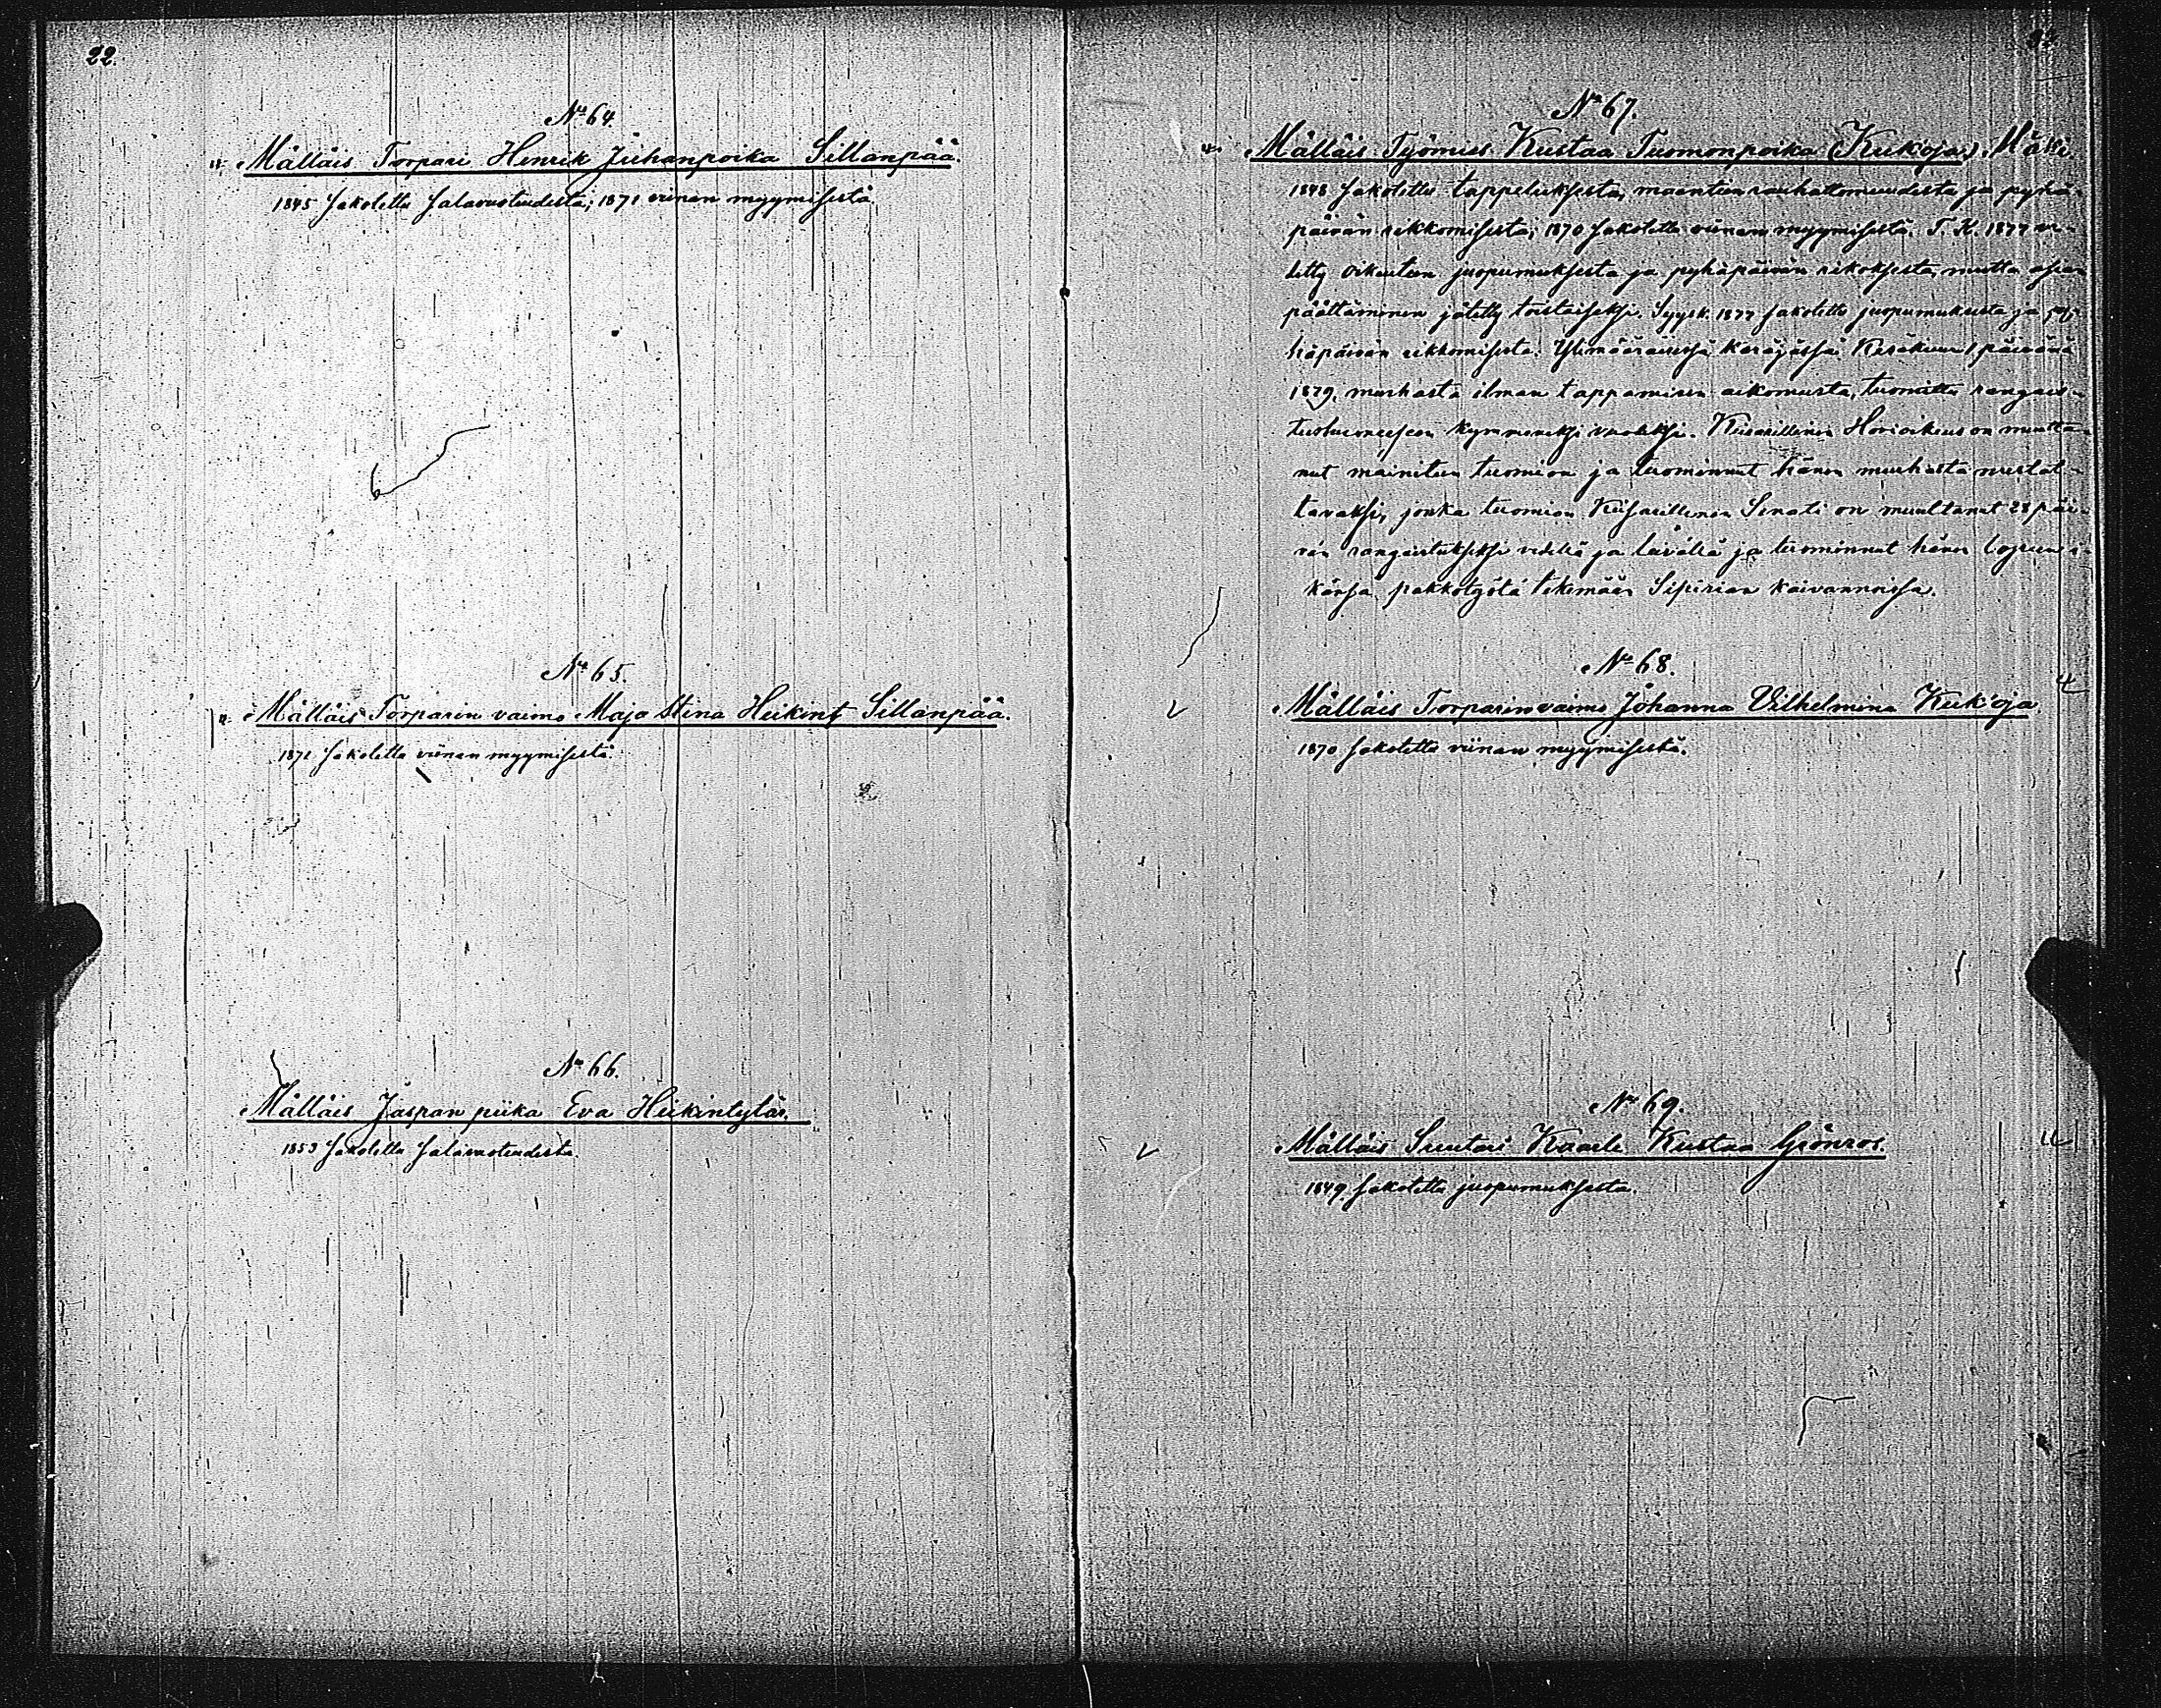 22.
No 64.
Mälläis Torpari Henrik Juhanpoika Sillanpää.
1845 sakotettu salavuoteudesta; 1871 viinan myymisestä.
No 65.
Mälläis Torparin vaimo Maja Stina Heikint Sillanpää.
1871 sakotettu viinan myymisestä.
No 66.
Mälläis Jaspan piika Eva Heikintytär.
1853 sakotettu salavuoteudesta.
No 67.
Mälläis Työmies Kustaa Tuomonpoika (Kuk'oja)
1848 sakotettu tappeluksesta, maantien rauhattomuudesta ja pyhä-
päivän rikkomisesta; 1870 sakotettu viinan myymisestä. T. K. 1877 ve-
detty oikeuteen juopumuksesta ja pyhäpäivän rikoksesta, mutta asian
päättäminen jätetty toistaiseksi. Syysk. 1877 sakotettu juopumuksesta ja py-
häpäivän rikkomisesta. Ylimääräisessä Käräjässä Kesäkuun 1 päivänä
1879, murhasta ilman tappamisen aikomusta, tuomittu rangais-
tushuoneeseen kymmeneksi vuodeksi. Keisarillinen Hovioikeus on muutta-
nut mainitun tuomion ja tuominnut hänen murhasta mestat-
tavaksi, jonka tuomion Keisarillinen Senati on muuttanut 28 päi-
vän rangaistukseksi vedellä ja leivällä ja tuominnut hänen loppuun i-
känsä pakkotyötä tekemään Sipirian kaivannoissa.
No 68.
Mälläis Torparinvaimo Johanna Vilhelmina Kuk'oja
1870 sakotettu viinan myymisestä.
No 69.
Mälläis Suutari Kaarle Kustaa Grönros.
1849 sakotettu juopumuksesta.